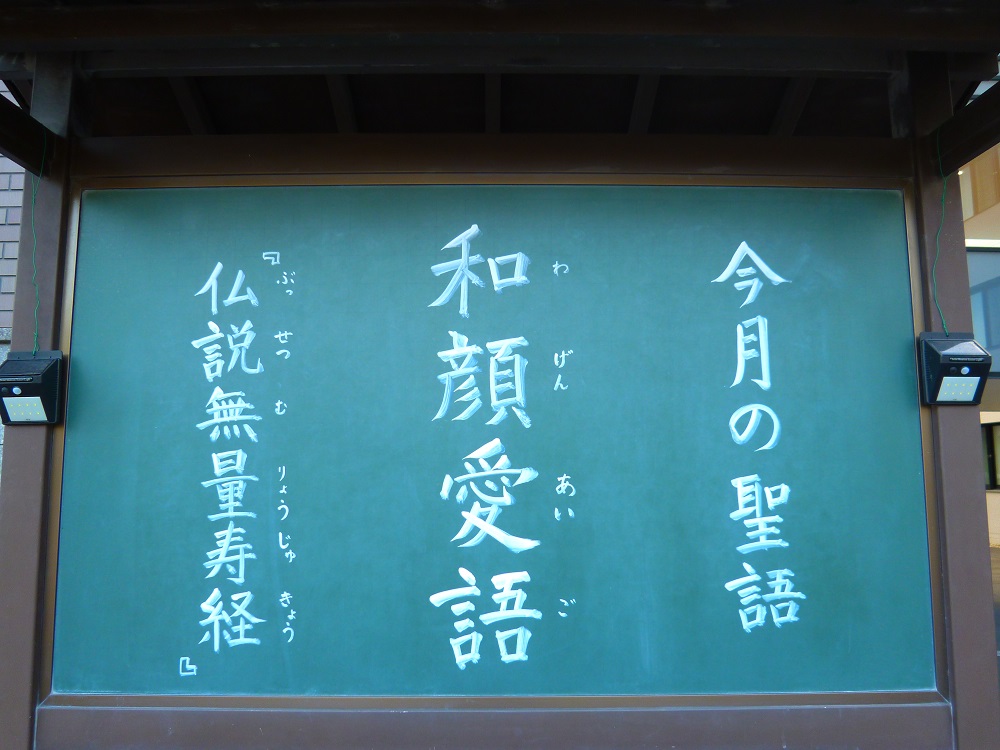 今月の聖語
和顔愛語
わげんあいご
『仏説無量寿経』
ぶっせつむりょうじゅきょう